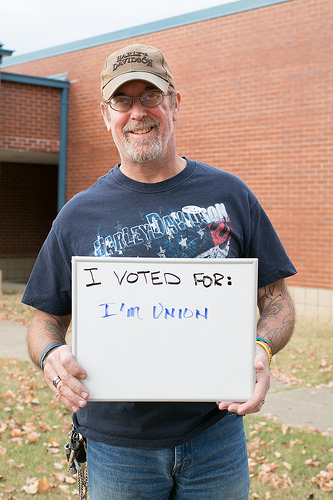 HARLEY
DAVIDSON
HARLEY-DAVIDSON
I VOTED FOR:
I'M UNION